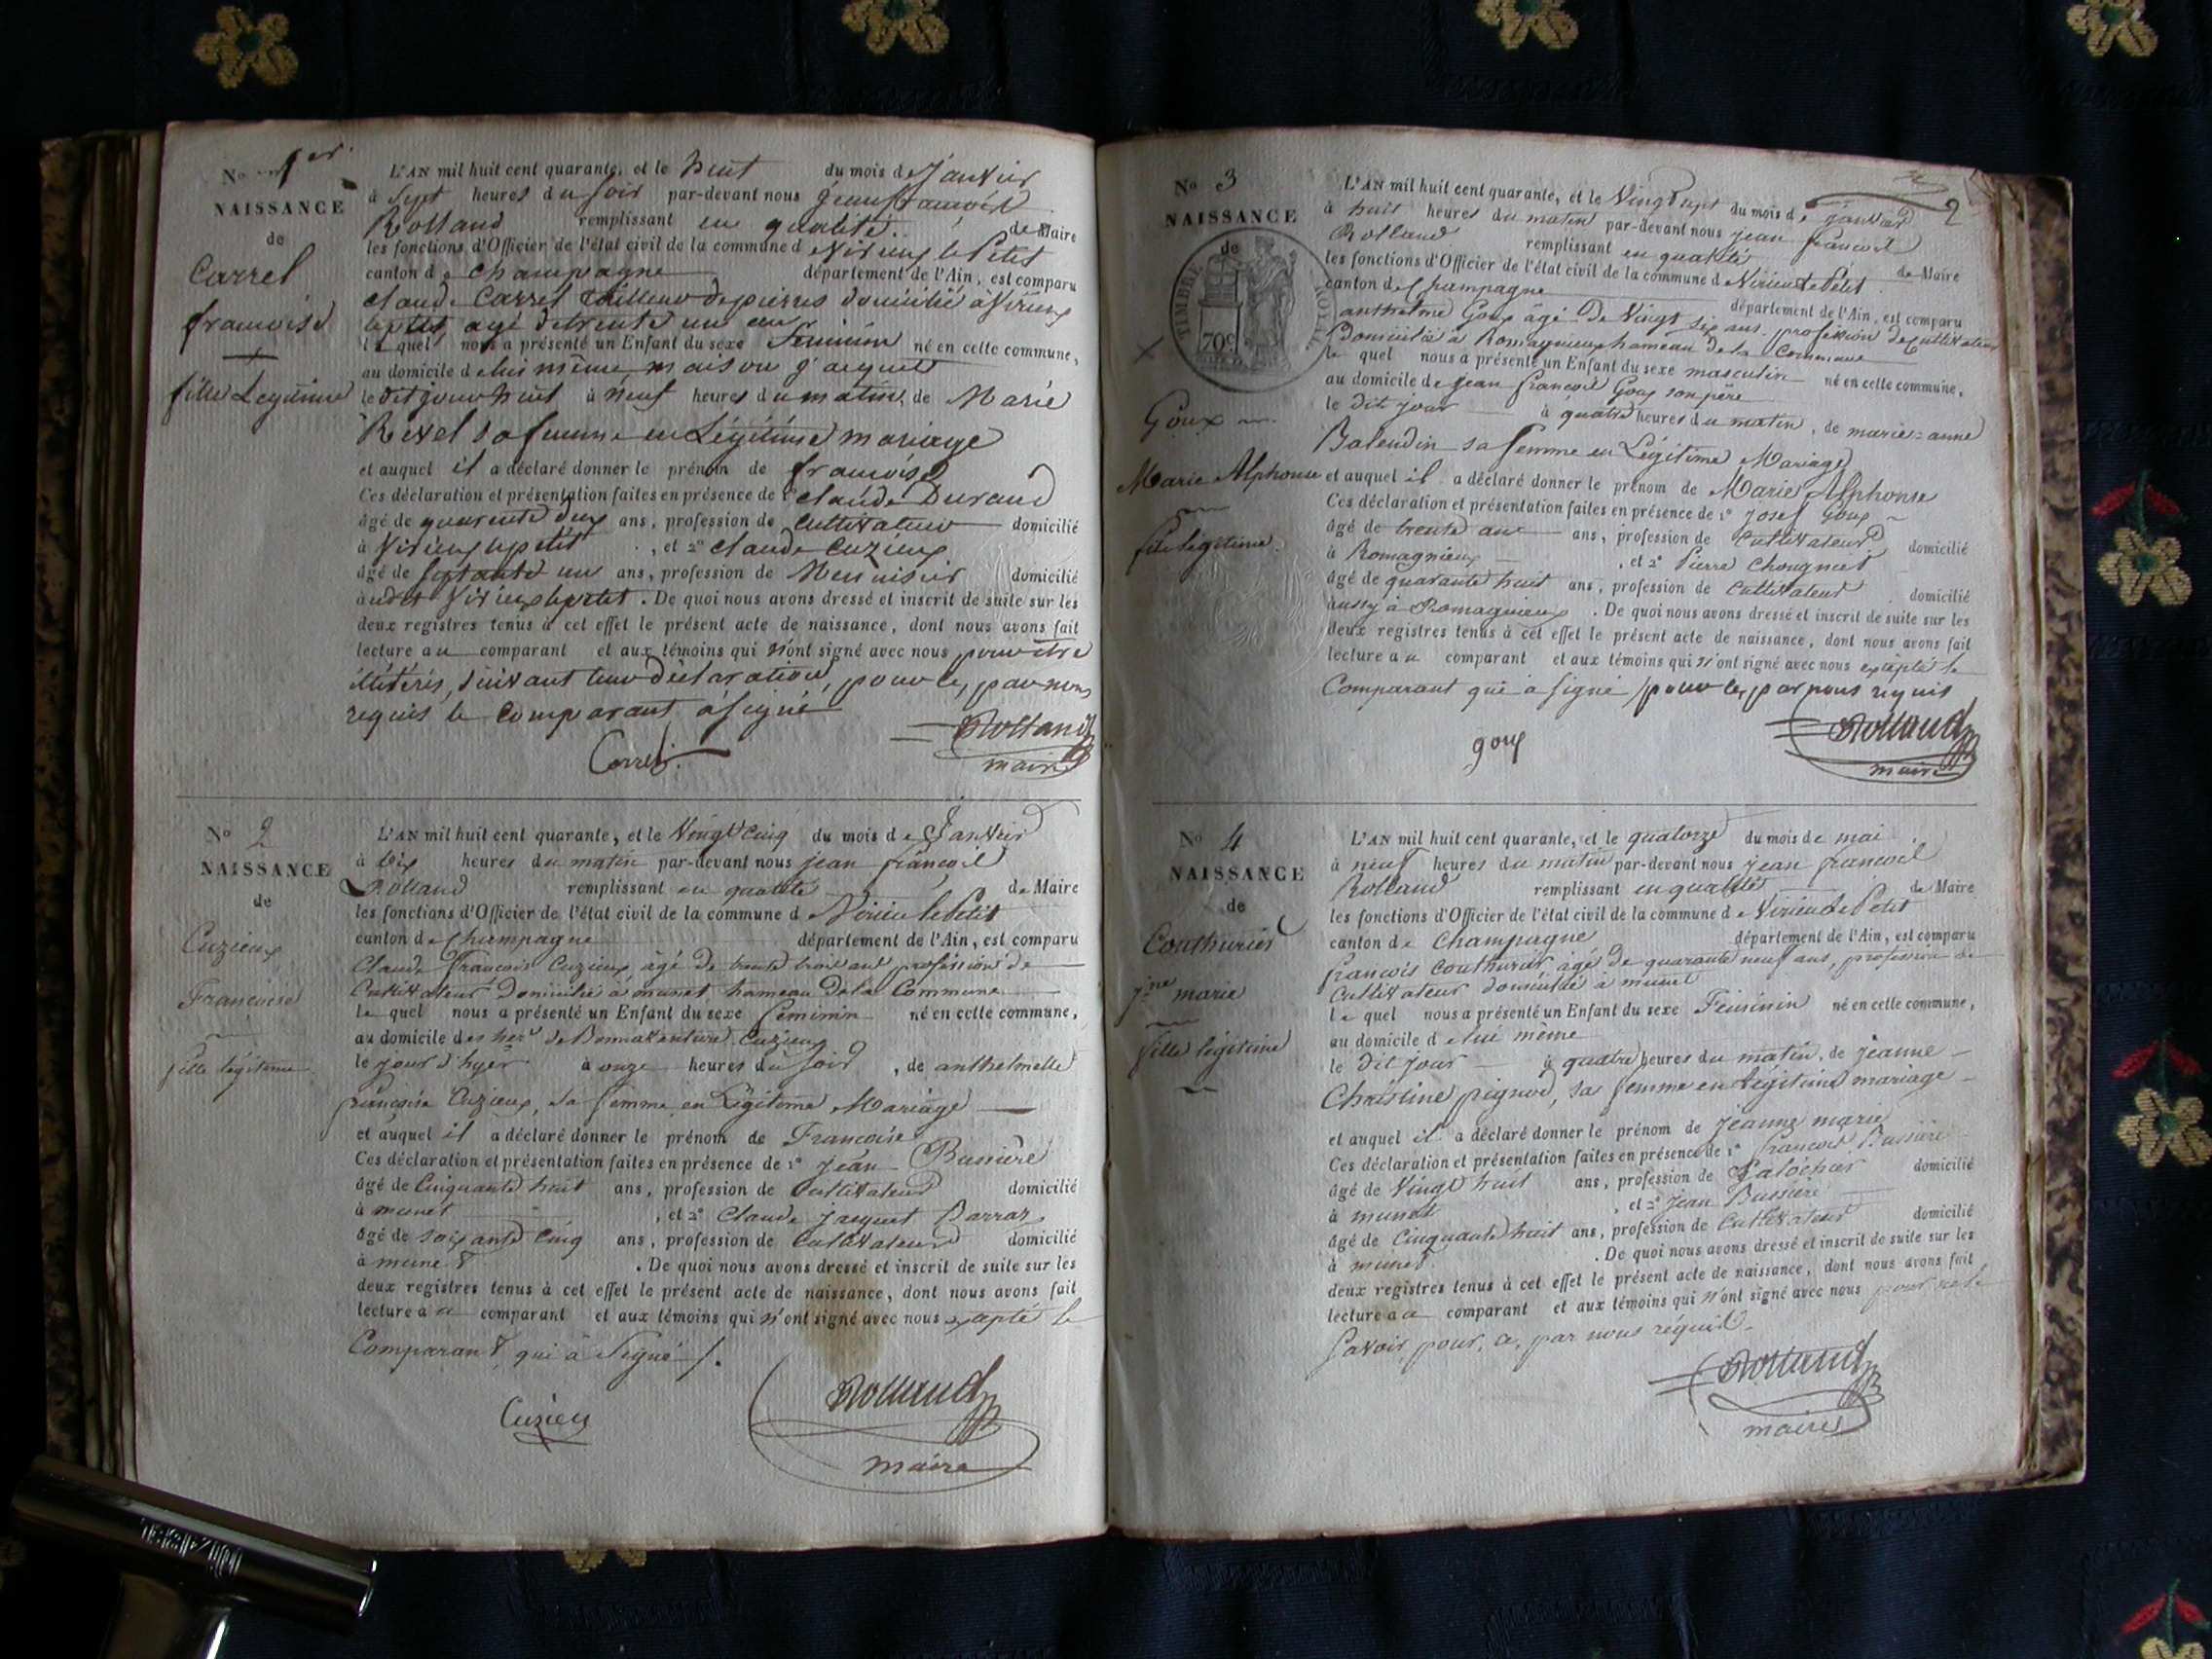 No 1er.
NAISSANCE
de
Carrel
francoise
fille Legitime
L'AN mil huit cent quarante, et le huit du mois de Janvier
à Sept heures du soir par-devant nous jean francois
Rolland remplissant en qualité de Maire
les fonctions d'Officier de l'état civil de la commune d Virieux le Petit
canton de Champagne département de l'Ain, est comparu
claude Carrel tailleur de pierres domicilié à Virieux
le petit agé de trente un ans
le quel nous a présenté un Enfant du sexe feminin né en cette commune,
au domicile de lui même maison jacquet
le dit jour huit à neuf heures du matin, de Marie
Revel sa femme en Légitime mariage
et auquel il a déclaré donner le prénom de francoise
Ces déclaration et présentation faites en présence de 1° claude Durand
âgé de quarente deux ans, profession de Cultivateur domicilié
à Virieux le petit , et 2° claude Cuzieux
âgé de septante un ans, profession de Menuisier domicilié
audit Virieux le petit . De quoi nous avons dressé et inscrit de suite sur les
deux registres tenus à cet effet le présent acte de naissance, dont nous avons fait
lecture au comparant et aux témoins qui n'ont signé avec nous pour être
illitérés, suivant leur déclaration, pour ce, par nous
requis le comparant à signé
Carrel Rolland
maire
No 2
NAISSANCE
de
Cuzieux
Francoise
fille légitime
L'AN mil huit cent quarante, et le Vingt cinq du mois de Janvier
à dix heures du matin par-devant nous jean françois
Rolland remplissant en qualité de Maire
les fonctions d'Officier de l'état civil de la commune d Virieu le Petit
canton de Champagne département de l'Ain, est comparu
Claude François Cuzieux, âgé de trente trois ans profession de
Cultivateur Domicilié à munet hameau de la Commune
le quel nous a présenté un Enfant du sexe féminin né en cette commune,
au domicile des her. de Bonnaventure Cuzieux
le jour d'hyer à onze heures du soir , de anthelmette
françoise Cuzieux, sa femme en Légitime Mariage
et auquel il a déclaré donner le prénom de Francoise
Ces déclaration et présentation faites en présence de 1° Jean Bussiere
âgé de Cinquante huit ans, profession de Cultivateur domicilié
à munet , et 2° Claude Jacquet Barraz
âgé de soixante cinq ans, profession de Cultivateur domicilié
à munet . De quoi nous avons dressé et inscrit de suite sur les
deux registres tenus à cet effet le présent acte de naissance, dont nous avons fait
lecture au comparant et aux témoins qui n'ont signé avec nous exapté le
Comparant, qui à Signé /.
Cuzieu Rolland
maire
2
No 3
NAISSANCE
de
TIMBRE ROYAL
70c
Goux
Marie Alphonse
fils légitime.
L'AN mil huit cent quarante, et le Vingt sept du mois de janvier
à huit heures du matin par-devant nous jean francois
Rolland remplissant en qualité de Maire
les fonctions d'Officier de l'état civil de la commune d Virieu le Petit
canton de Champagne département de l'Ain, est comparu
anthelme Goux âgé de Vingt six ans profession de Cultivateur
Domicilié à Romagnieux hameau de la Commune
le quel nous a présenté un Enfant du sexe masculin né en cette commune,
au domicile de jean françois Goux son père
le dit jour à quatre heures du matin, de marie-anne
Balendin sa femme en Légitime Mariage
et auquel il a déclaré donner le prénom de Marie Alphonse
Ces déclaration et présentation faites en présence de 1° Josef Goux
âgé de trente ans ans, profession de Cultivateur domicilié
à Romagnieux , et 2° Pierre Chougnet
âgé de quarante huit ans, profession de Cultivateur domicilié
aussy à Romagnieux . De quoi nous avons dressé et inscrit de suite sur les
deux registres tenus à cet effet le présent acte de naissance, dont nous avons fait
lecture au comparant et aux témoins qui n'ont signé avec nous exapté le
Comparant qui à signé / pour ce, par nous requis
goux Rolland
maire
No 4
NAISSANCE
de
Couthurier
jne marie
fille légitime
L'AN mil huit cent quarante, et le quatorze du mois de mai
à neuf heures du matin par-devant nous jean francois
Rolland remplissant en qualité de Maire
les fonctions d'Officier de l'état civil de la commune d Virieu le Petit
canton de Champagne département de l'Ain, est comparu
françois Couthurier âgé de quarante neuf ans, profession de
Cultivateur domicilié à munet
le quel nous a présenté un Enfant du sexe Féminin né en cette commune,
au domicile d elui même
le dit jour à quatre heures du matin, de jeanne
Christine pignod, sa femme en légitime mariage
et auquel il a déclaré donner le prénom de jeanne marie
Ces déclaration et présentation faites en présence de 1° francois Bussiere
âgé de Vingt huit ans, profession de Galochier domicilié
à munet , et 2° Jean Bussiere
âgé de Cinquante huit ans, profession de Cultivateur domicilié
à munet . De quoi nous avons dressé et inscrit de suite sur les
deux registres tenus à cet effet le présent acte de naissance, dont nous avons fait
lecture au comparant et aux témoins qui n'ont signé avec nous pour ne le
savoir pour, ce, par nous requis.
Rolland
maire